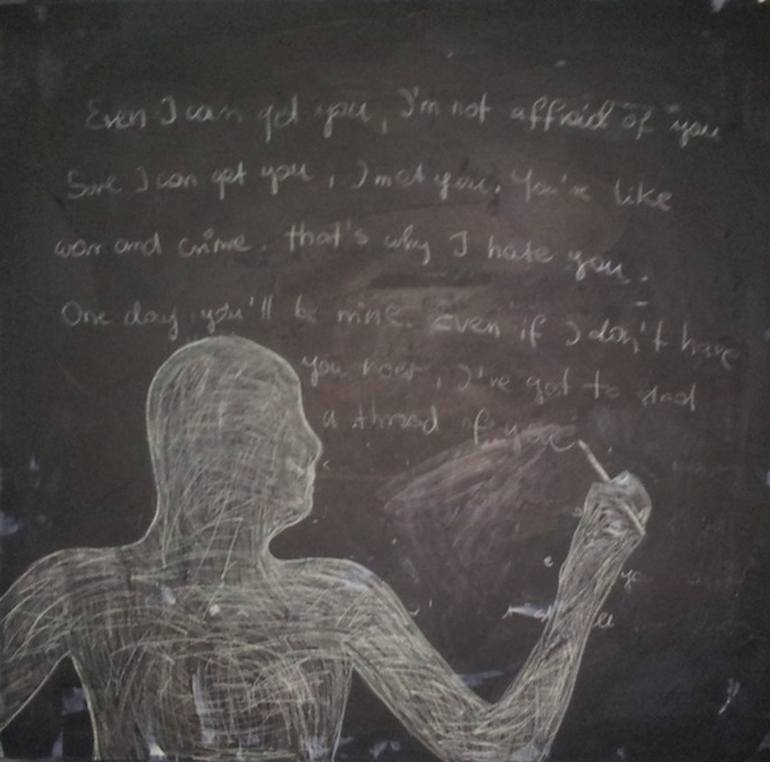 Even I can get you, I'm not affraid of you
Sure I can get you, I met you. You're like
war and crime. that's why I hate you.
One day you'll be mine. Even if I don't have
you now, I've got to
a thread of you